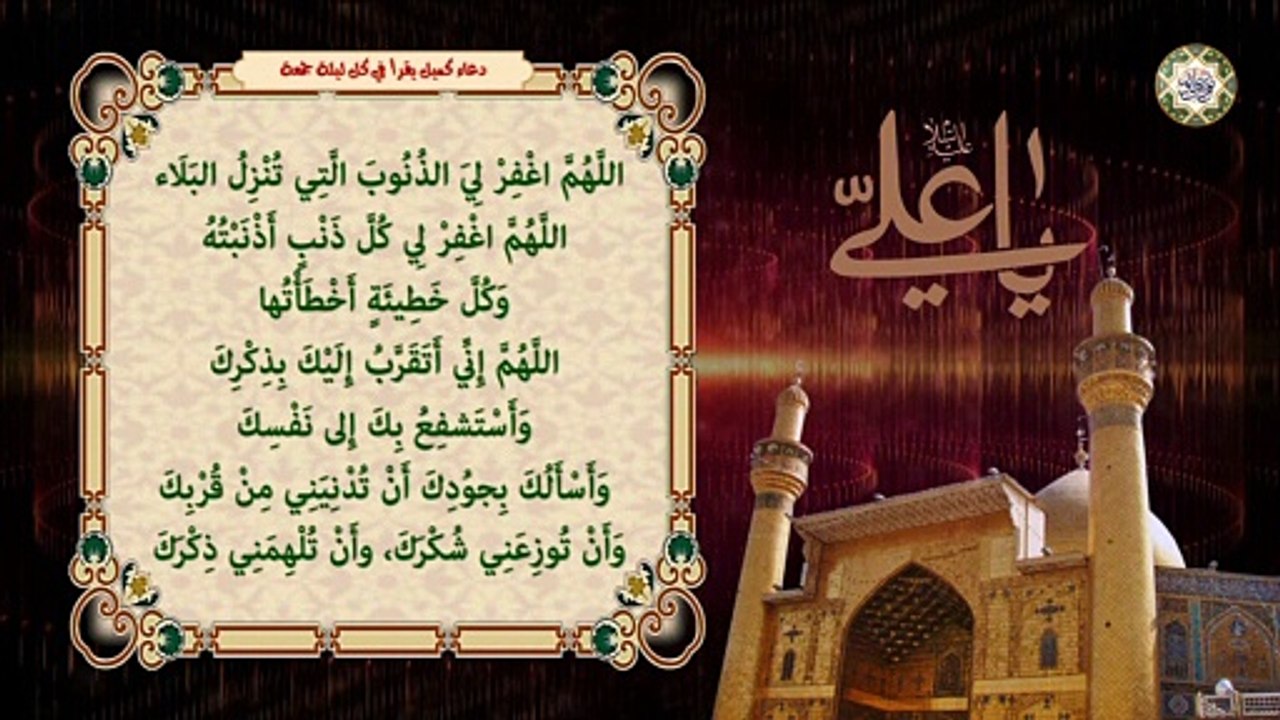 دعاء كميل يقرأ في كل ليلة جمعة
اللَّهُمَّ اغْفِرْ لِيَ الذُنُوبَ الَّتِي تُنْزِلُ البَلَاء
اللَّهُمَّ اغْفِرْ لِي كُلَّ ذَنْبٍ أَذْنَبْتُهُ
وَكُلَّ خَطِيئَةٍ أَخْطَأْتُها
اللَّهُمَّ إِنِّي أَتَقَرَّبُ إِلَيْكَ بِذِكْرِكَ
وَأَسْتَشفِعُ بِكَ إِلى نَفْسِكَ
وَأَسْأَلُكَ بِجوُدِكَ أَنْ تُدْنِيَنِي مِنْ قُرْبِكَ
وَأَنْ تُوزِعَنِي شُكْرَكَ، وأَنْ تُلْهِمَنِي ذِكْرَكَ
يا علي
عليه السلام